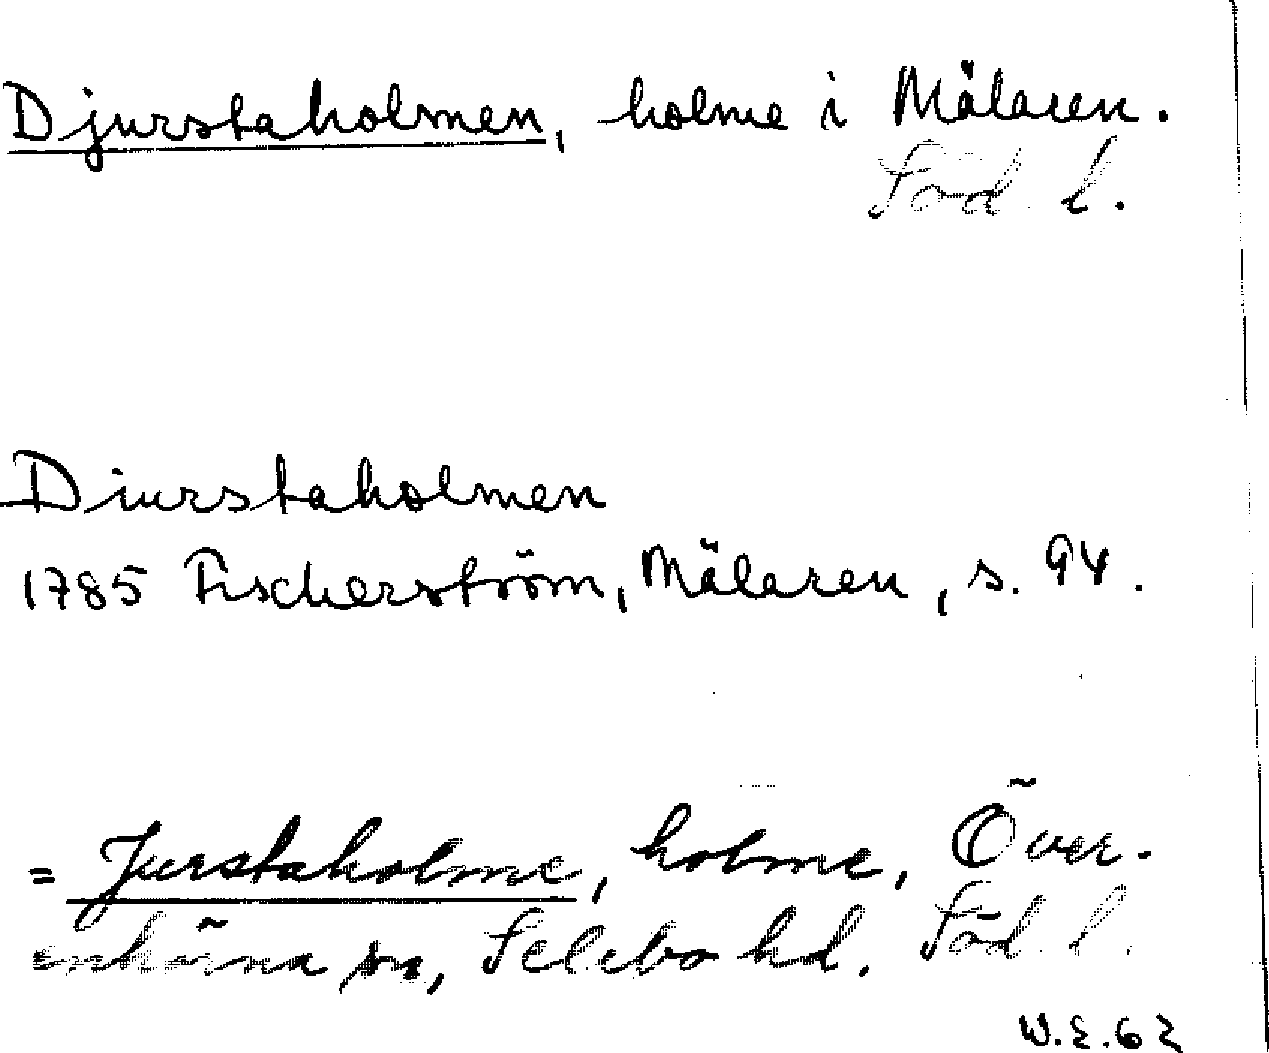 Djurstaholmen, holme i Mälaren.
Söd. l.
Diurstaholmen
1785 Fischerström, Mälaren, s. 94.
= Jurstaholme, holme, Över-
enhörna sn, Selebo hd. Söd. l.
W.E.62